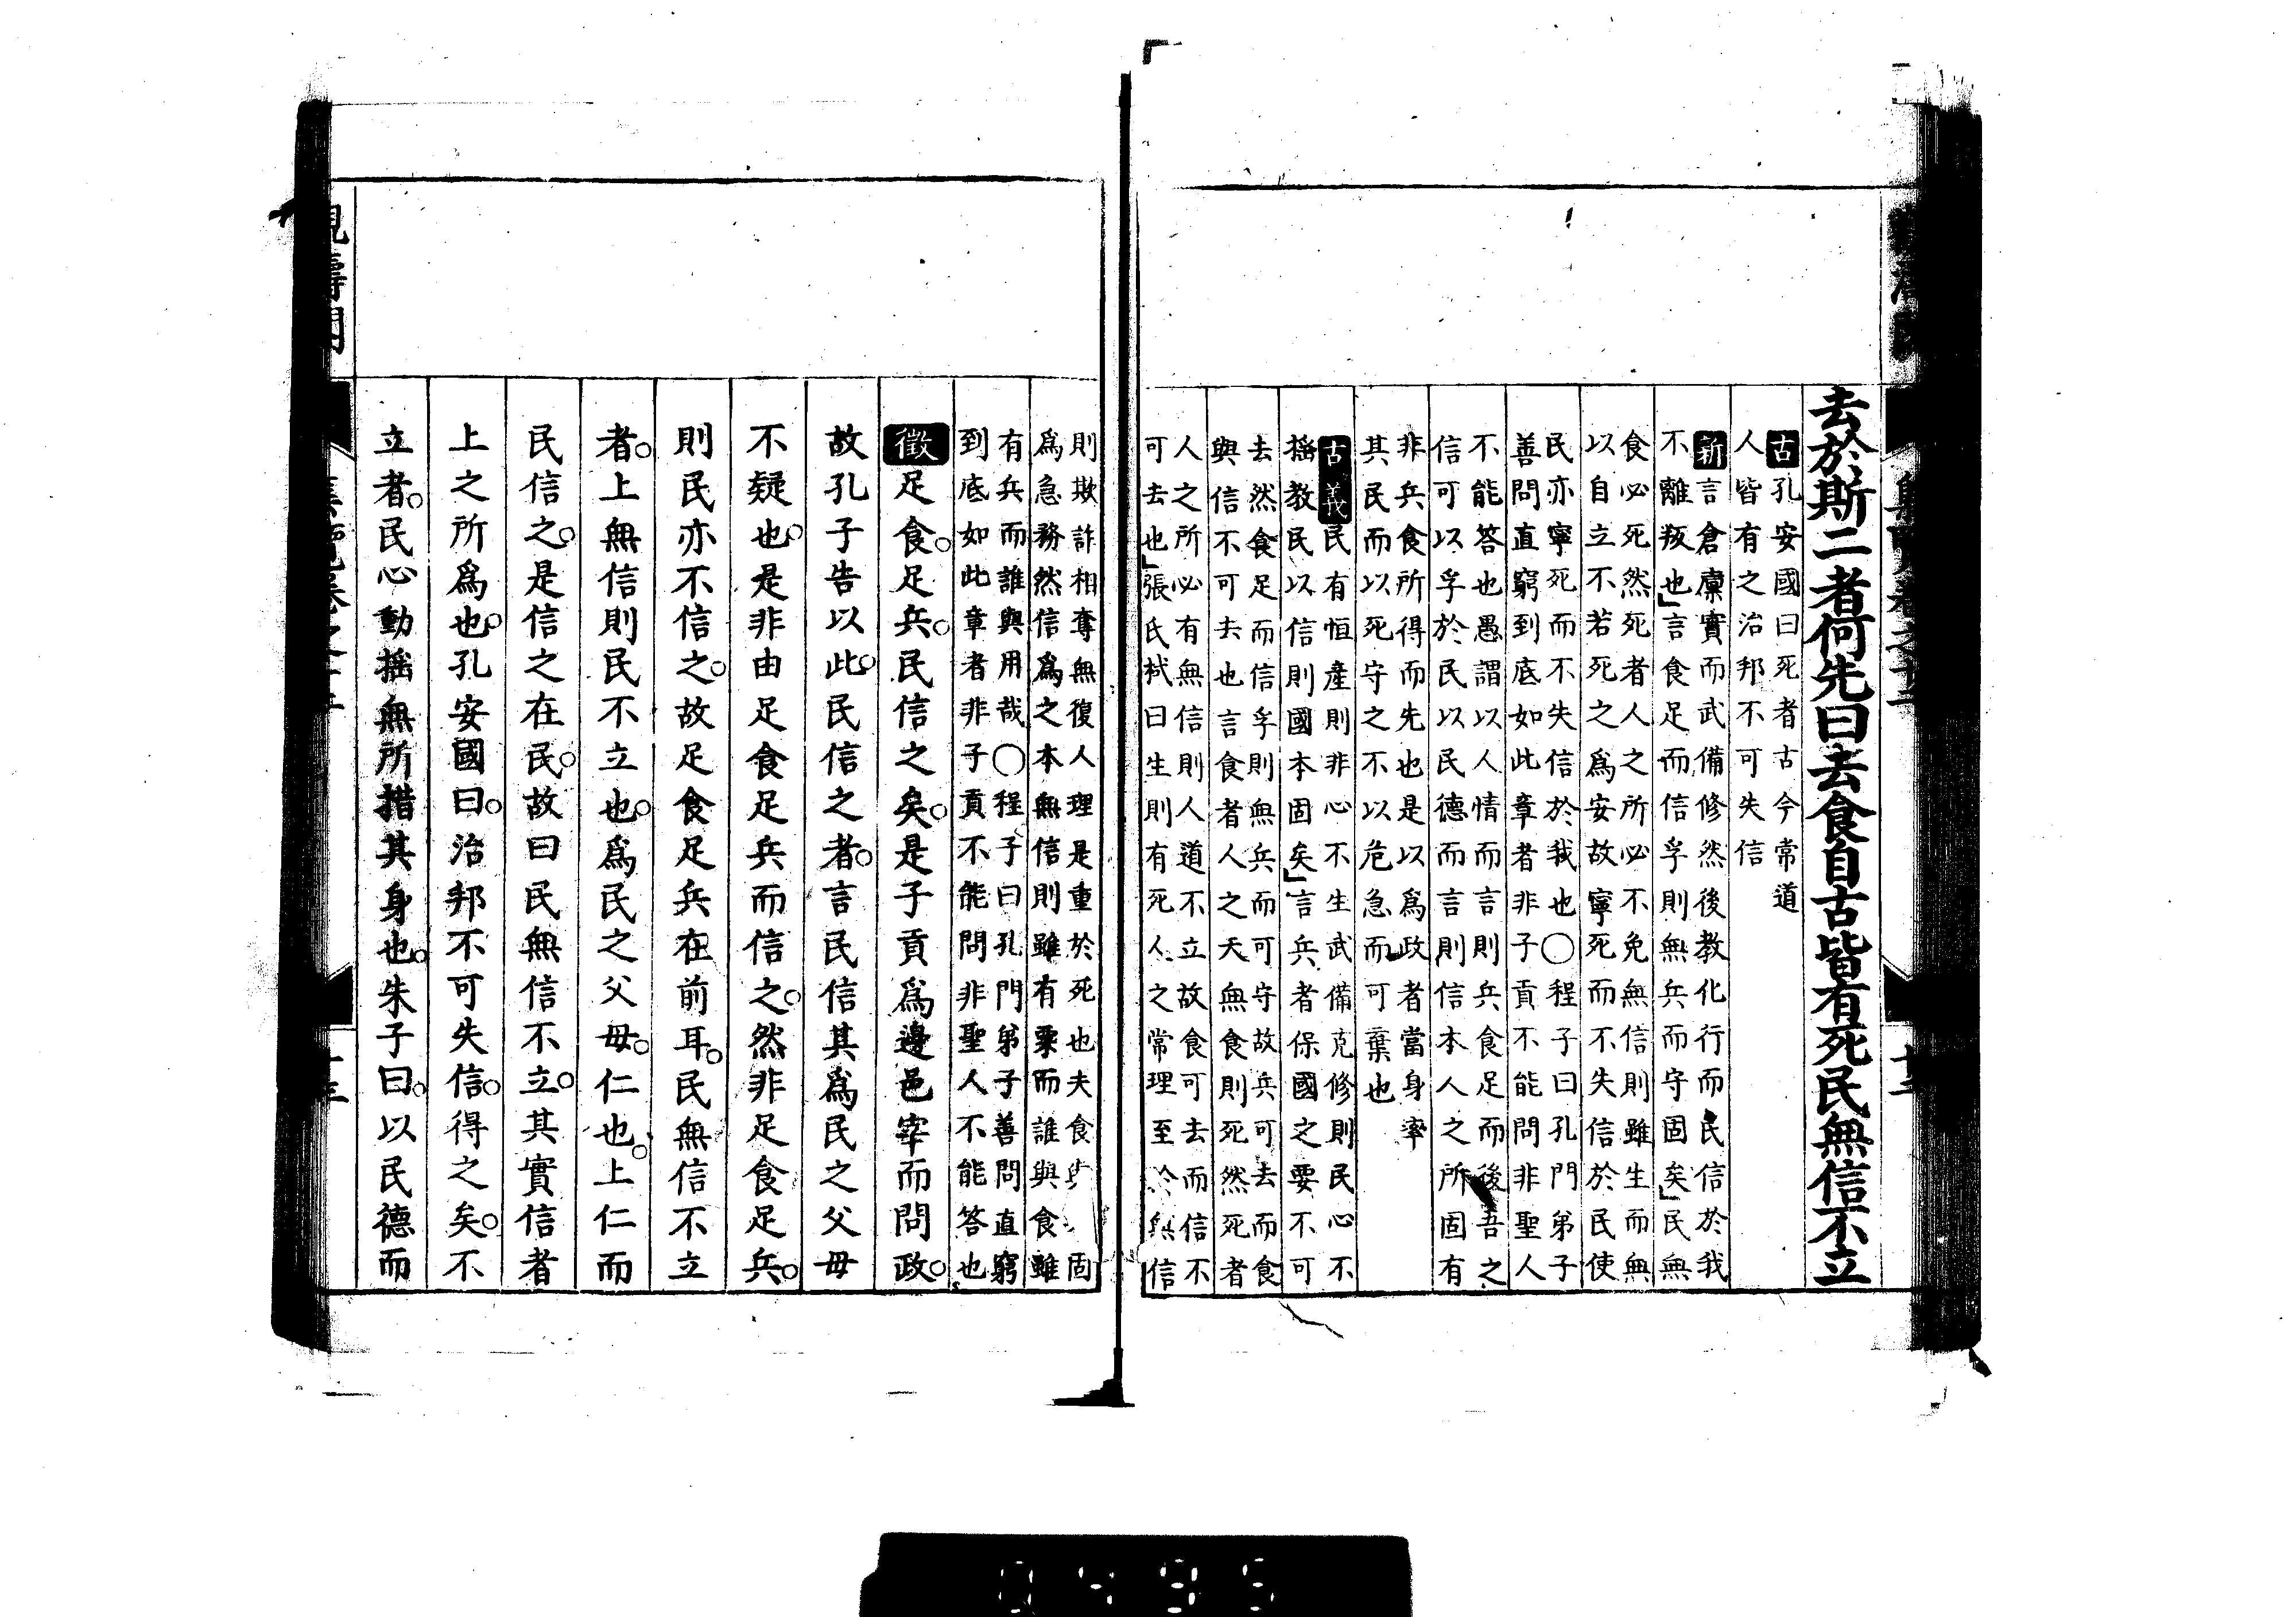 去於斯二者何先曰去食自古皆有死民無信不立
古孔安國曰死者古今常道
人皆有之治邦不可失信
新言倉廩實而武備修然後教化行而民信於我
不離叛也言食足而信孚則無兵而守固矣民無
食必死然死者人之所必不免無信則雖生而無
以自立不若死之爲安故寧死而不失信於民使
民亦寧死而不失信於我也○程子曰孔門弟子
善問直窮到底如此章者非子貢不能問非聖人
不能答也愚謂以人情而言則兵食足而後吾之
信可以孚於民以民德而言則信本人之所固有
非兵食所得而先也是以爲政者當身率
其民而以死守之不以危急而可棄也
古義民有恒產則非心不生武備克修則民心不
搖教民以信則國本固矣言兵者保國之要不可
去然食足而信孚則無兵而可守故兵可去而食
與信不可去也言食者人之天無食則死然死者
人之所必有無信則人道不立故食可去而信不
可去也張氏栻曰生則有死人之常理至於無信
則欺詐相奪無復人理是重於死也夫食固
爲急務然信爲之本無信則雖有粟而誰與食雖
有兵而誰與用哉○程子曰孔門弟子善問直窮
到底如此章者非子貢不能問非聖人不能答也
徵足食足兵民信之矣是子貢爲邊邑宰而問政
故孔子告以此民信之者言民信其爲民之父母
不疑也是非由足食足兵而信之然非足食足兵
則民亦不信之故足食足兵在前耳民無信不立
者上無信則民不立也爲民之父母仁也上仁而
民信之是信之在民故曰民無信不立其實信者
上之所爲也孔安國曰治邦不可失信得之矣不
立者民心動搖無所措其身也朱子曰以民德而
0495